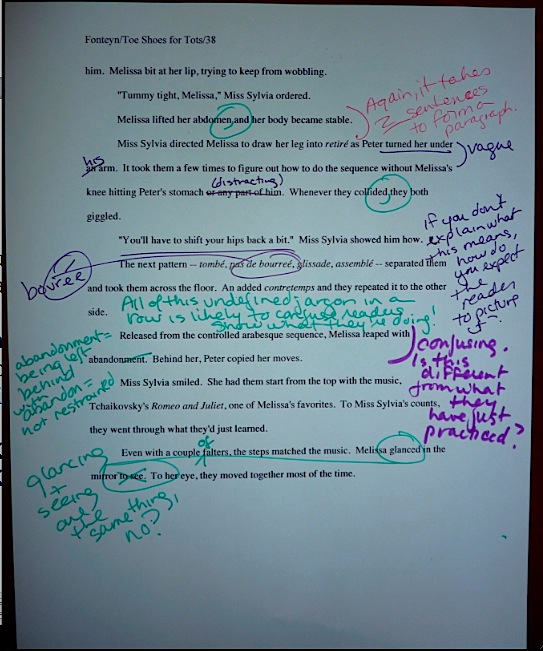 Fonteyn/Toe Shoes for Tots/38
him. Melissa bit at her lip, trying to keep from wobbling.
"Tummy tight, Melissa," Miss Sylvia ordered.
Melissa lifted her abdomen,and her body became stable.
Again, it takes
2 sentences
to form a
paragraph.
Miss Sylvia directed Melissa to draw her leg into retiré as Peter turned her under
vague
his
an arm. It took them a few times to figure out how to do the sequence without Melissa's
(distracting)
knee hitting Peter's stomach or any part of him. Whenever they collided,they both
giggled.
"You'll have to shift your hips back a bit." Miss Sylvia showed him how.
if you don't
explain what
this means,
how do
you expect
the
reader
to picture
it?
The next pattern -- tombé, pas de bourreé, glissade, assemblé -- separated them
bourée
and took them across the floor. An added contretemps and they repeated it to the other
side.
All of this undefined jargon in a
row is likely to confuse readers
show what they're doing!
Released from the controlled arabesque sequence, Melissa leaped with
abandonment. Behind her, Peter copied her moves.
abandonment=
being left
behind
with
abandon=
not restrained
confusing.
Is this
different
from what
they
have just
practiced?
Miss Sylvia smiled. She had them start from the top with the music,
Tchaikovsky's Romeo and Juliet, one of Melissa's favorites. To Miss Sylvia's counts,
they went through what they'd just learned.
of
Even with a couple falters, the steps matched the music. Melissa glanced in the
mirror to see. To her eye, they moved together most of the time.
glancing
+
seeing
are
the
same thing,
no?